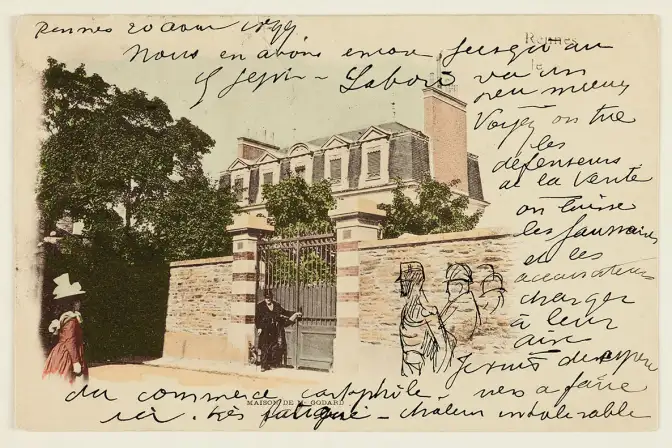 Rennes 20 aout 1899
Rennes
le
Nous en avons encore jusqu'au
9 Sept - Labori va un
peu mieux
Voyez on tue
les
défenseurs
de la Vérité
on laisse
les faussaires
et les
accusateurs
charger
à leur
aise
Je suis
du commerce cartophile - rien a faire
ici. très fatigué - chaleur intolérable
MAISON DE Mr GODARD